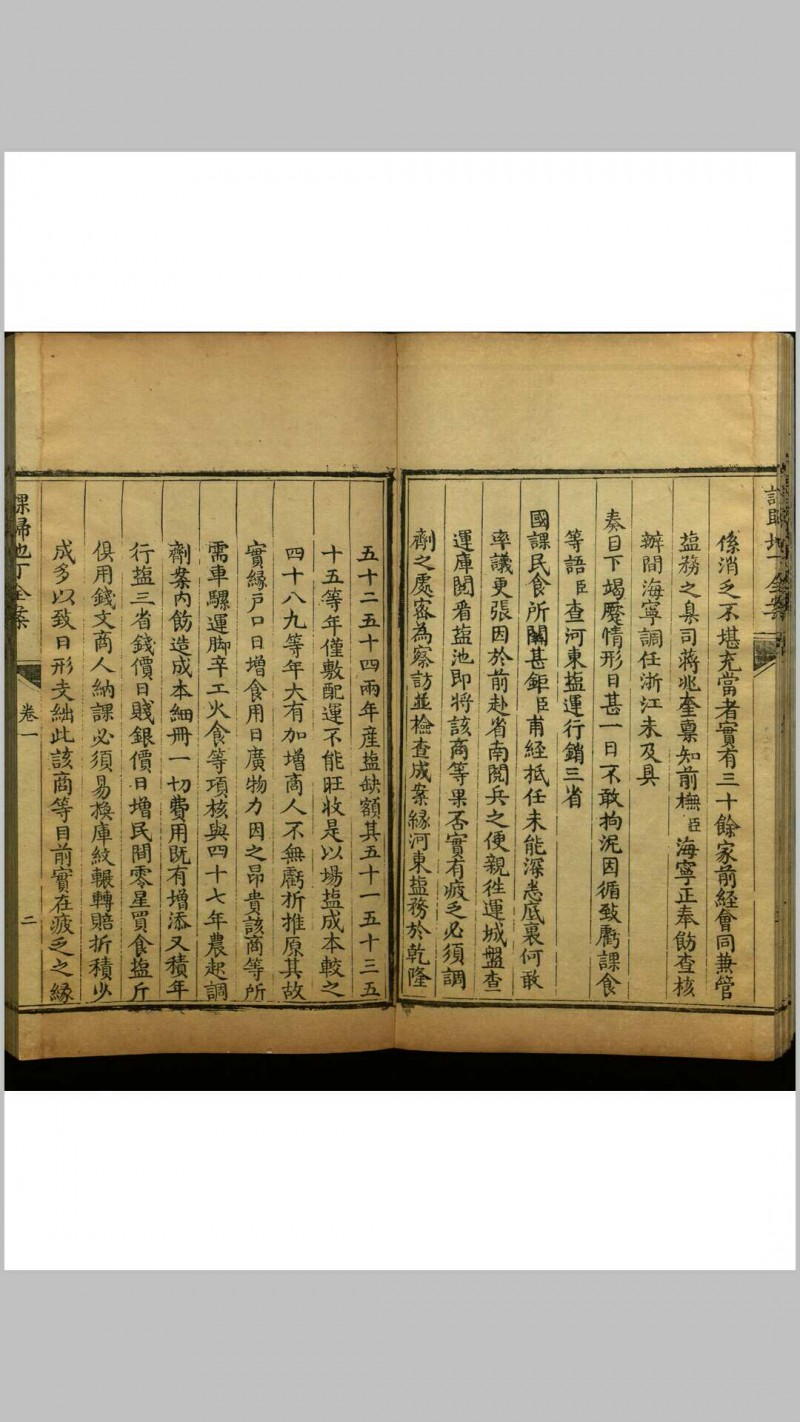 歸地丁全案
係消乏不堪充當者實有三十餘家前經會同兼管
塩務之臬司蔣兆奎禀知前撫臣海寧正奉飭查核
辦間海寧調任浙江未及具
奏目下竭蹷情形日甚一日不敢拘泥因循致虧課食
等語臣查河東塩運行銷三省
國課民食所關甚鉅臣甫經抵任未能深悉底裏何敢
率議更張因於前赴省南閱兵之便親徃運城盤查
運庫閱看塩池即將該商等果否實有疲乏必須調
劑之處密為察訪並檢查成案緣河東塩務於乾隆
五十二五十四兩年産塩缺額其五十一五十三五
十五等年僅敷配運不能旺收是以場塩成本較之
四十八九等年大有加增商人不無虧折推原其故
實緣戶口日增食用日廣物力因之昂貴該商等所
需車騾運脚辛工火食等項核與四十七年農起調
劑案內飭造成本細冊一切費用既有增添又積年
行塩三省錢價日賤銀價日增民間零星買食塩斤
俱用錢文商人納課必須易換庫紋輾轉賠折積少
成多以致日形支絀此該商等目前實在疲乏之緣
課歸地丁全案 卷一 二